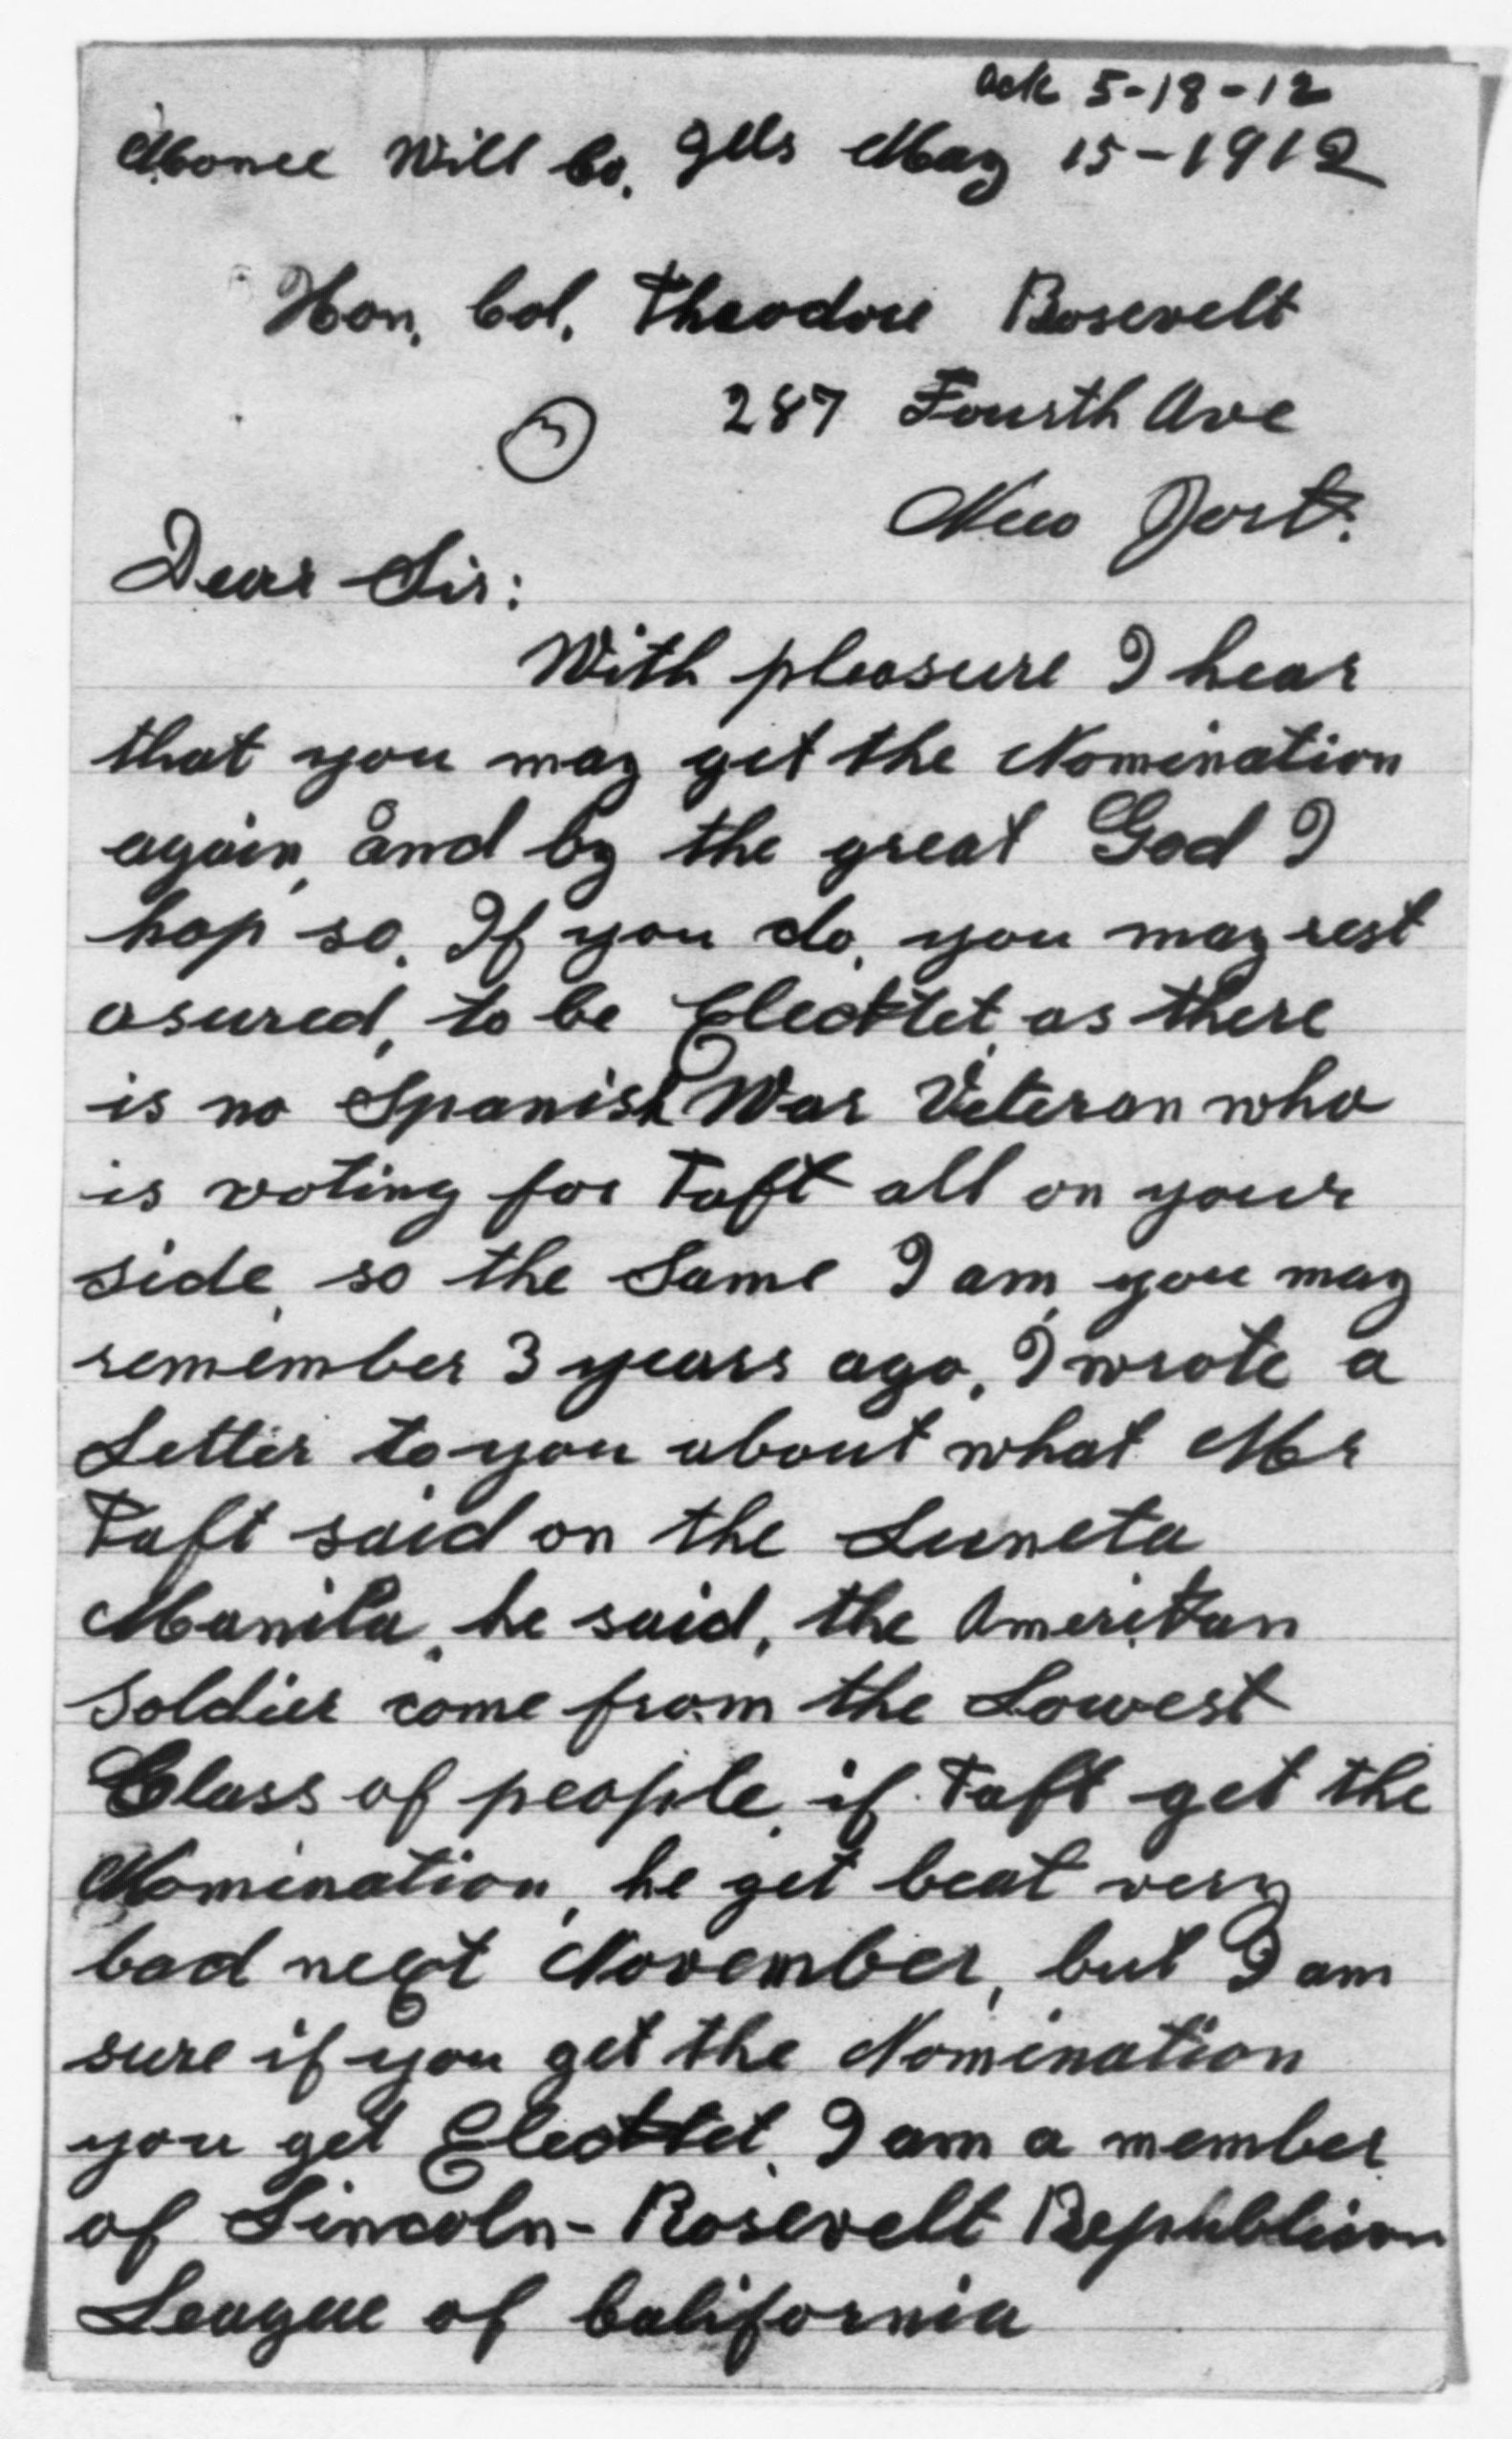 ack 5-18-12
Monee Will Co. Ills May 15-1912
Hon. Col. Theodore Rosevelt
287 Fourth Ave
New York.
Dear Sir:
With pleasure I hear
that you may get the Nomination
again, and by the great God I
hop so. If you do, you may rest
asured, to be Electtet, as there
is no Spanish War Veteran who
is voting for Taft all on your
side, so the same I am, you may
remember 3 years ago, I wrote a
Letter to you about what Mr
Taft said on the Luneta
Manila, he said, the Ameritan
Soldier come from the Lowest
Class of people, if Taft get the
Nomination, he get beat very
bad next November, but I am
sure if you get the Nomination
you get Electtet. I am a member
of Lincoln-Rosevelt Republican
League of California